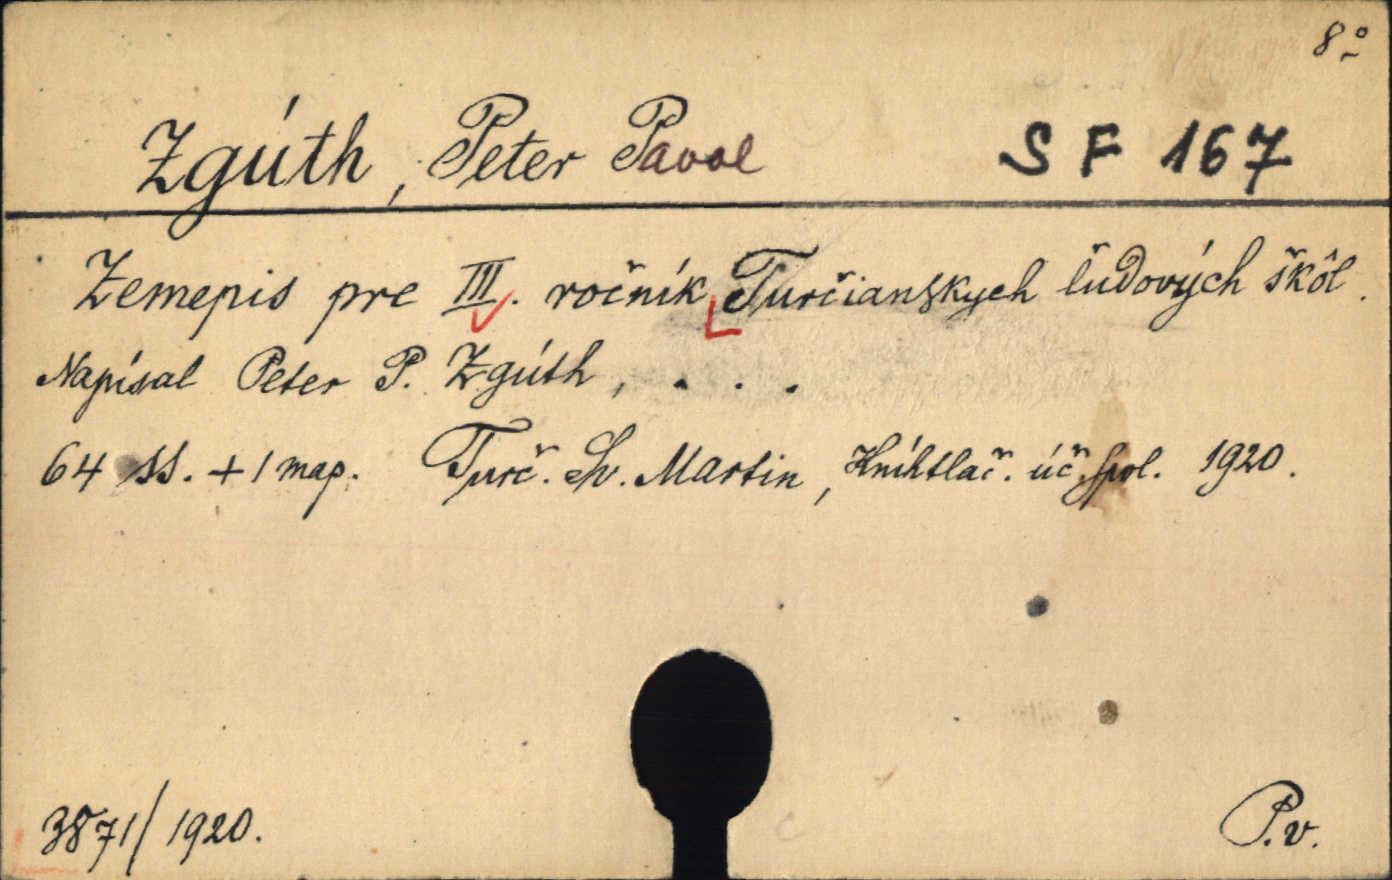 8°
Zgúth, Peter Pavol S F 167
Zemepis pre III. ročník Turčianskych ľudových škôl.
Napísal Peter P. Zgúth, . . .
64 ss. + 1 map. Turč. Sv. Martin, Kníhtlač. úč. spol. 1920.
3871/1920. P.v.